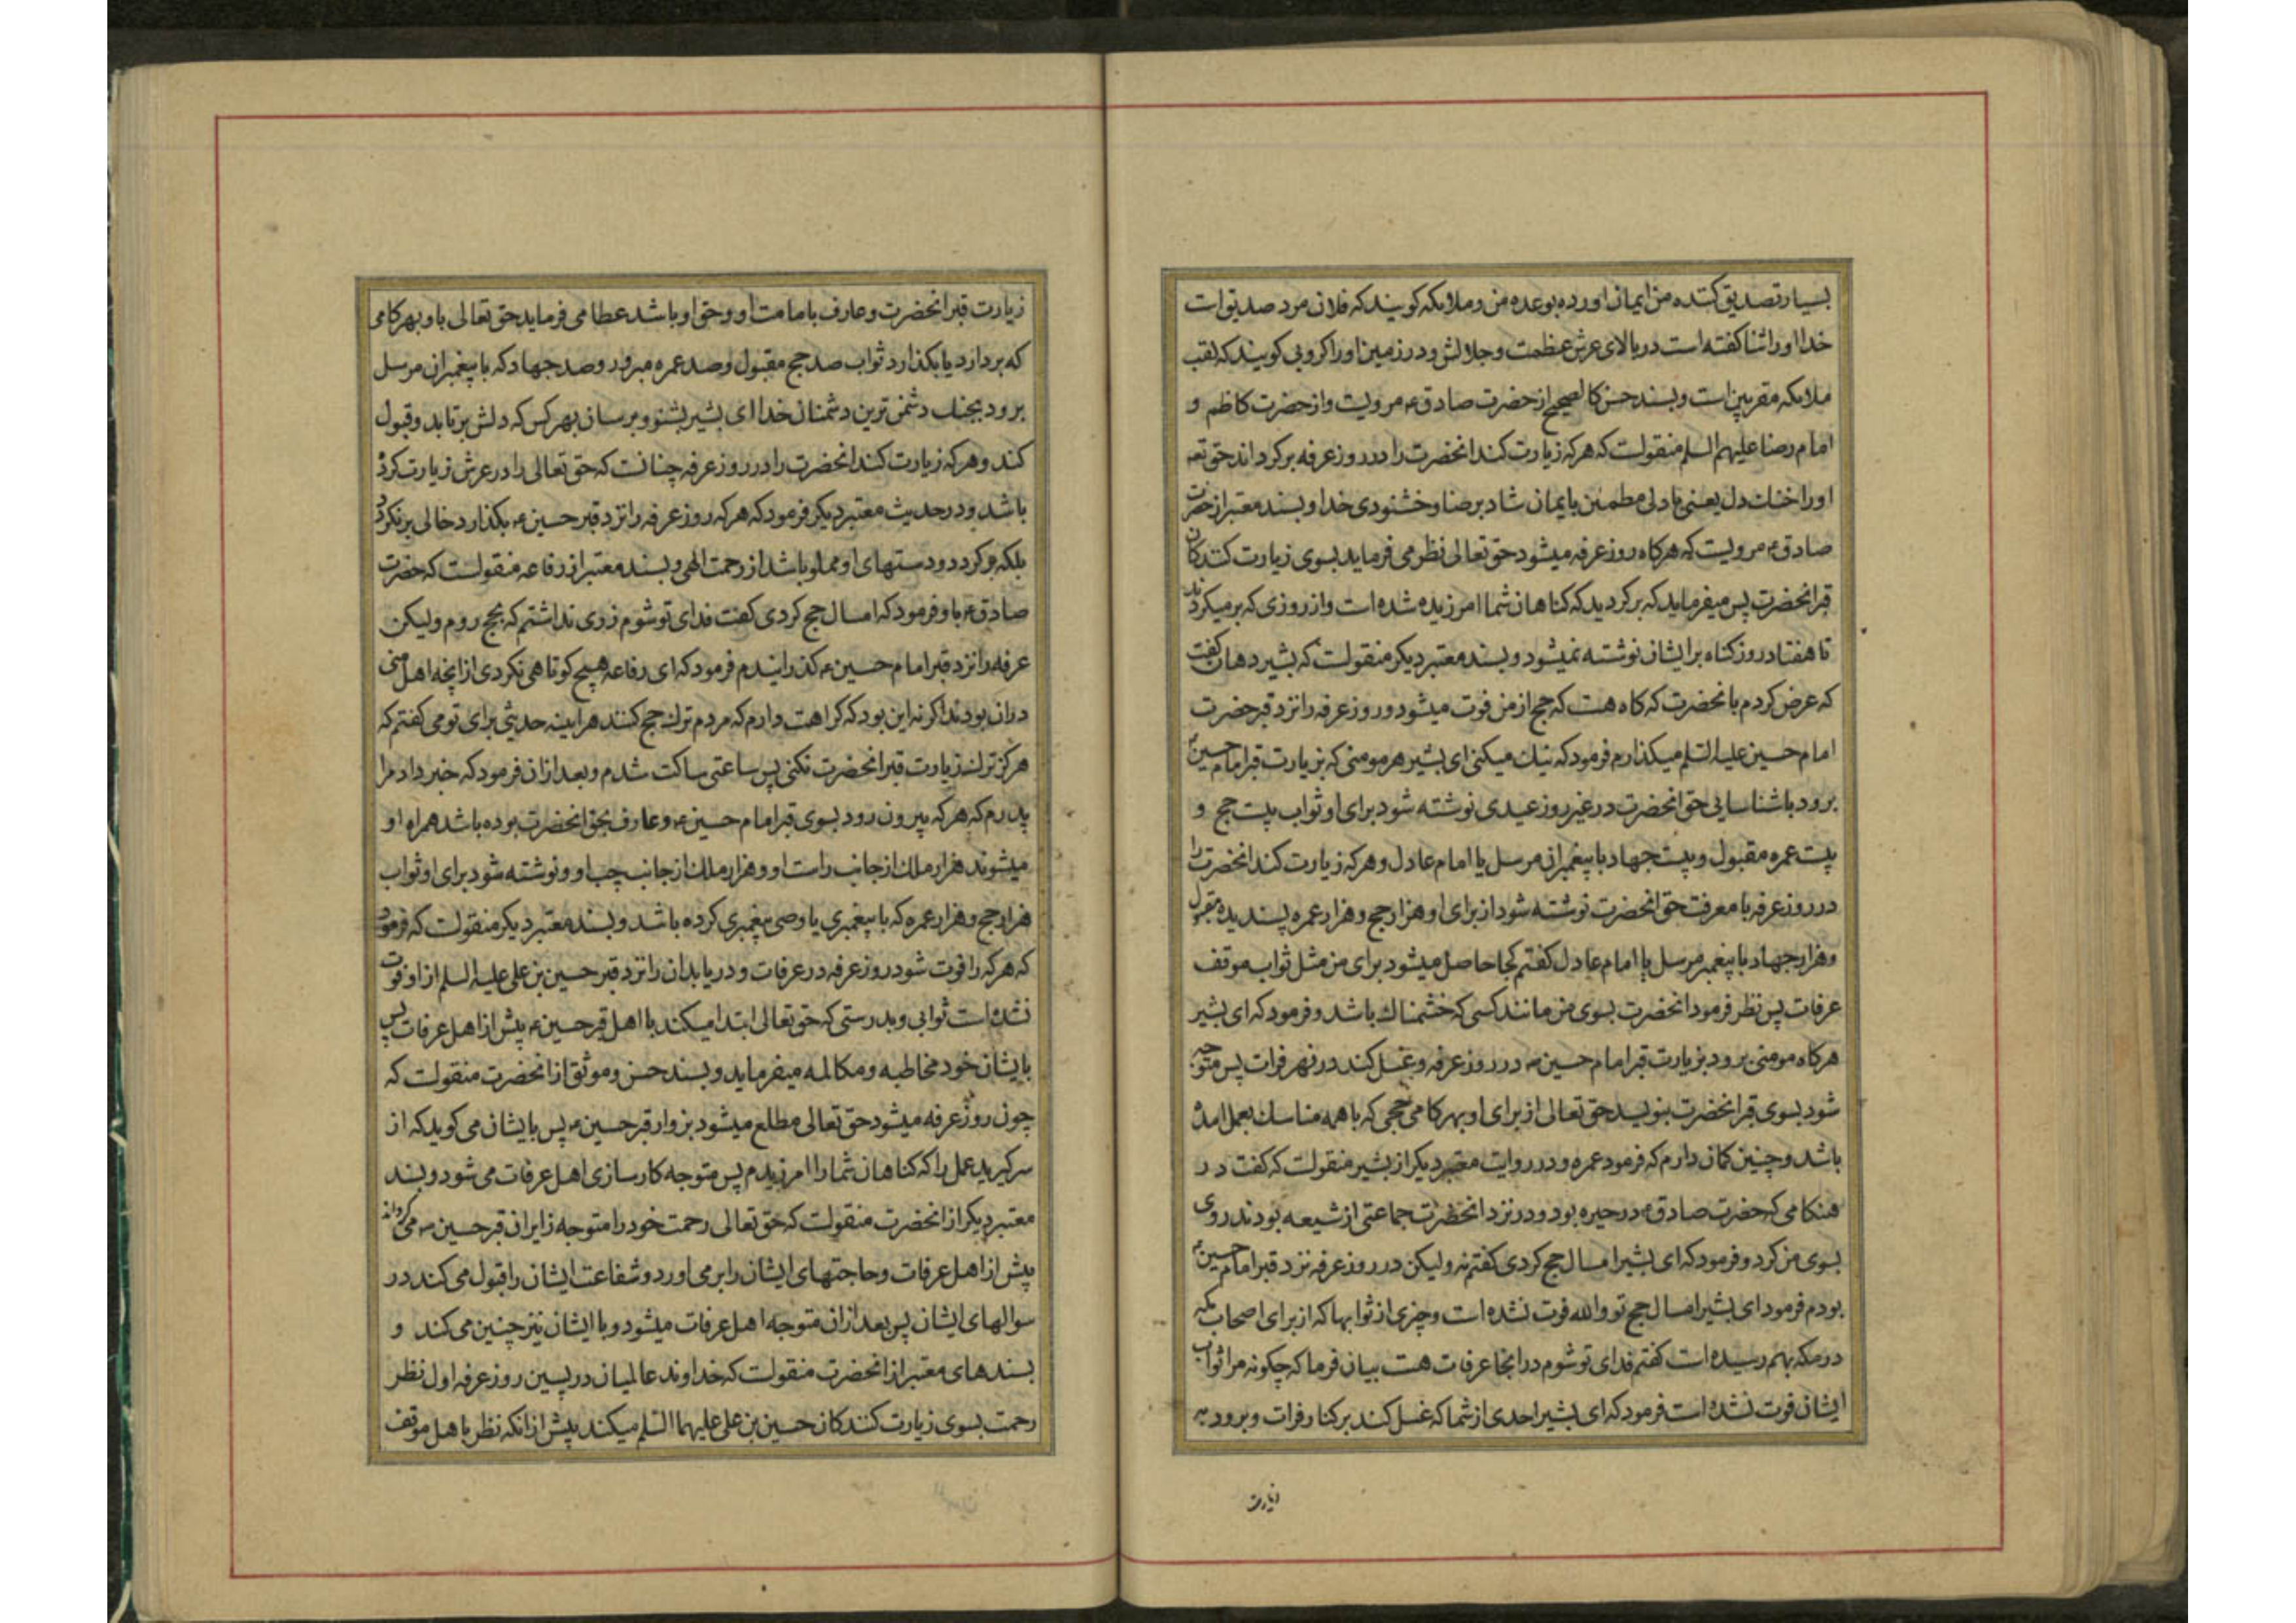 بسیار تصدیق کننده من ایمان اورده بوعده من و ملائکه کویند که فلان مرد صدیق است
خدا او را ثنا کفته است در بالای عرش عظمت و جلالش و در زمین او را کروبی کویند که لقب
ملائکه مقربین است و بسند حسن کالصحیح از حضرت صادق ع مرویست و از حضرت کاظم و
امام رضا علیهم السلم منقولست که هر که زیارت کند انحضرت را در روز عرفه برکرداند حق تعه
او را خنک دل یعنی با دلی مطمئن بایمان شاد برضا و خشنودی خدا و بسند معتبر از حضرت
صادق ع مرویست که هرکاه روز عرفه میشود حق تعالی نظر می فرماید بسوی زیارت کنندکان
قبر انحضرت پس میفرماید که برکردید که کناهان شما امرزیده شده است و از روزی که برمیکردند
تا هفتاد روز کناه بر ایشان نوشته نمیشود و بسند معتبر دیکر منقولست که بشیر دهان کفت
که عرض کردم بانحضرت که کاه هست که حج از من فوت میشود و روز عرفه را نزد قبر حضرت
امام حسین علیه السلم میکذارم فرمود که نیک میکنی ای بشیر هر مومنی که بزیارت قبر امام حسین ع
برود باشناسایی حق انحضرت در غیر روز عیدی نوشته شود برای او ثواب بیست حج و
بیست عمره مقبول و بیست جهاد با پیغمبران مرسل یا امام عادل و هر که زیارت کند انحضرت را
در روز عرفه با معرفت حق انحضرت نوشته شود از برای او هزار حج و هزار عمره پسندیده مقبول
و هزار جهاد با پیغمبر مرسل یا امام عادل کفتم کجا حاصل میشود برای من مثل ثواب موقف
عرفات پس نظر فرمود انحضرت بسوی من مانند کسی که خشمناک باشد و فرمود که ای بشیر
هرکاه مومنی برود بزیارت قبر امام حسین ع در روز عرفه و غسل کند در نهر فرات پس متوجه
شود بسوی قبر انحضرت بنویسد حق تعالی از برای او بهر کامی حجی که با همه مناسک بعمل امده
باشد و چنین کمان دارم که فرمود عمره و در روایت معتبر دیکر از بشیر منقولست که کفت در
هنکامی که حضرت صادق ع در حیره بود و در نزد انحضرت جماعتی از شیعه بودند روی
بسوی من کرد و فرمود که ای بشیر امسال حج کردی کفتم نه ولیکن در روز عرفه نزد قبر امام حسین ع
بودم فرمود ای بشیر امسال حج تو والله فوت نشده است و چیزی از ثوابها که از برای اصحاب مکه
در مکه بهم رسیده است کفتم فدای تو شوم در انجا عرفات هست بیان فرما که چکونه مرا ثواب
ایشان فوت نشده است فرمود که ای بشیر احدی از شما که غسل کند بر کنار فرات و برود به
زیارت
زیارت قبر انحضرت و عارف بامامت او و حق او باشد عطا می فرماید حق تعالی باو بهر کامی
که بردارد یا بکذارد ثواب صد حج مقبول و صد عمره مبرور و صد جهاد که با پیغمبران مرسل
برود بجنک دشمن ترین دشمنان خدا ای بشیر بشنو و برسان بهر کس که دلش برتابد و قبول
کند و هر که زیارت کند انحضرت را در روز عرفه چنانست که حق تعالی را در عرش زیارت کرده
باشد و در حدیث معتبر دیکر فرمود که هر که روز عرفه را نزد قبر حسین ع بکذارد خالی برنکردد
بلکه برکردد و دستهای او مملو باشد از رحمت الهی و بسند معتبر از رفاعه منقولست که حضرت
صادق ع باو فرمود که امسال حج کردی کفت فدای تو شوم زری نداشتم که بحج روم ولیکن
عرفه را نزد قبر امام حسین ع کذرانیدم فرمود که ای رفاعه هیچ کوتاهی نکردی از انچه اهل منی
دران بودند اکر نه این بود که کراهت دارم که مردم ترک حج کنند هر اینه حدیثی برای تو می کفتم که
هرکز ترک زیارت قبر انحضرت نکنی پس ساعتی ساکت شدم و بعد ازان فرمود که خبر داد مرا
پدرم که هر که بیرون رود بسوی قبر امام حسین ع و عارف بحق انحضرت بوده باشد همراه او
میشوند هزار ملک از جانب راست او و هزار ملک از جانب چپ او و نوشته شود برای او ثواب
هزار حج و هزار عمره که با پیغمبری یا وصی پیغمبری کرده باشد و بسند معتبر دیکر منقولست که فرمود
که هر که را فوت شود روز عرفه در عرفات و دریابد ان را نزد قبر حسین بن علی علیه السلم از او فوت
نشده است ثوابی و بدرستی که حق تعالی ابتدا میکند با اهل قبر حسین ع پیش از اهل عرفات پس
بایشان خود مخاطبه و مکالمه میفرماید و بسند حسن و موثق از انحضرت منقولست که
چون روز عرفه میشود حق تعالی مطلع میشود بزوار قبر حسین ع پس بایشان می کوید که از
سر کیرید عمل را که کناهان شما را امرزیدم پس متوجه کارسازی اهل عرفات می شود و بسند
معتبر دیکر از انحضرت منقولست که حق تعالی رحمت خود را متوجه زایران قبر حسین ع می کرداند
پیش از اهل عرفات و حاجتهای ایشان را برمی اورد و شفاعت ایشان را قبول می کند در
سوالهای ایشان پس بعد ازان متوجه اهل عرفات میشود و با ایشان نیز چنین می کند و
بسندهای معتبر از انحضرت منقولست که خداوند عالمیان در پسین روز عرفه اول نظر
رحمت بسوی زیارت کنندکان حسین بن علی علیهما السلم میکند پیش از انکه نظر باهل موقف